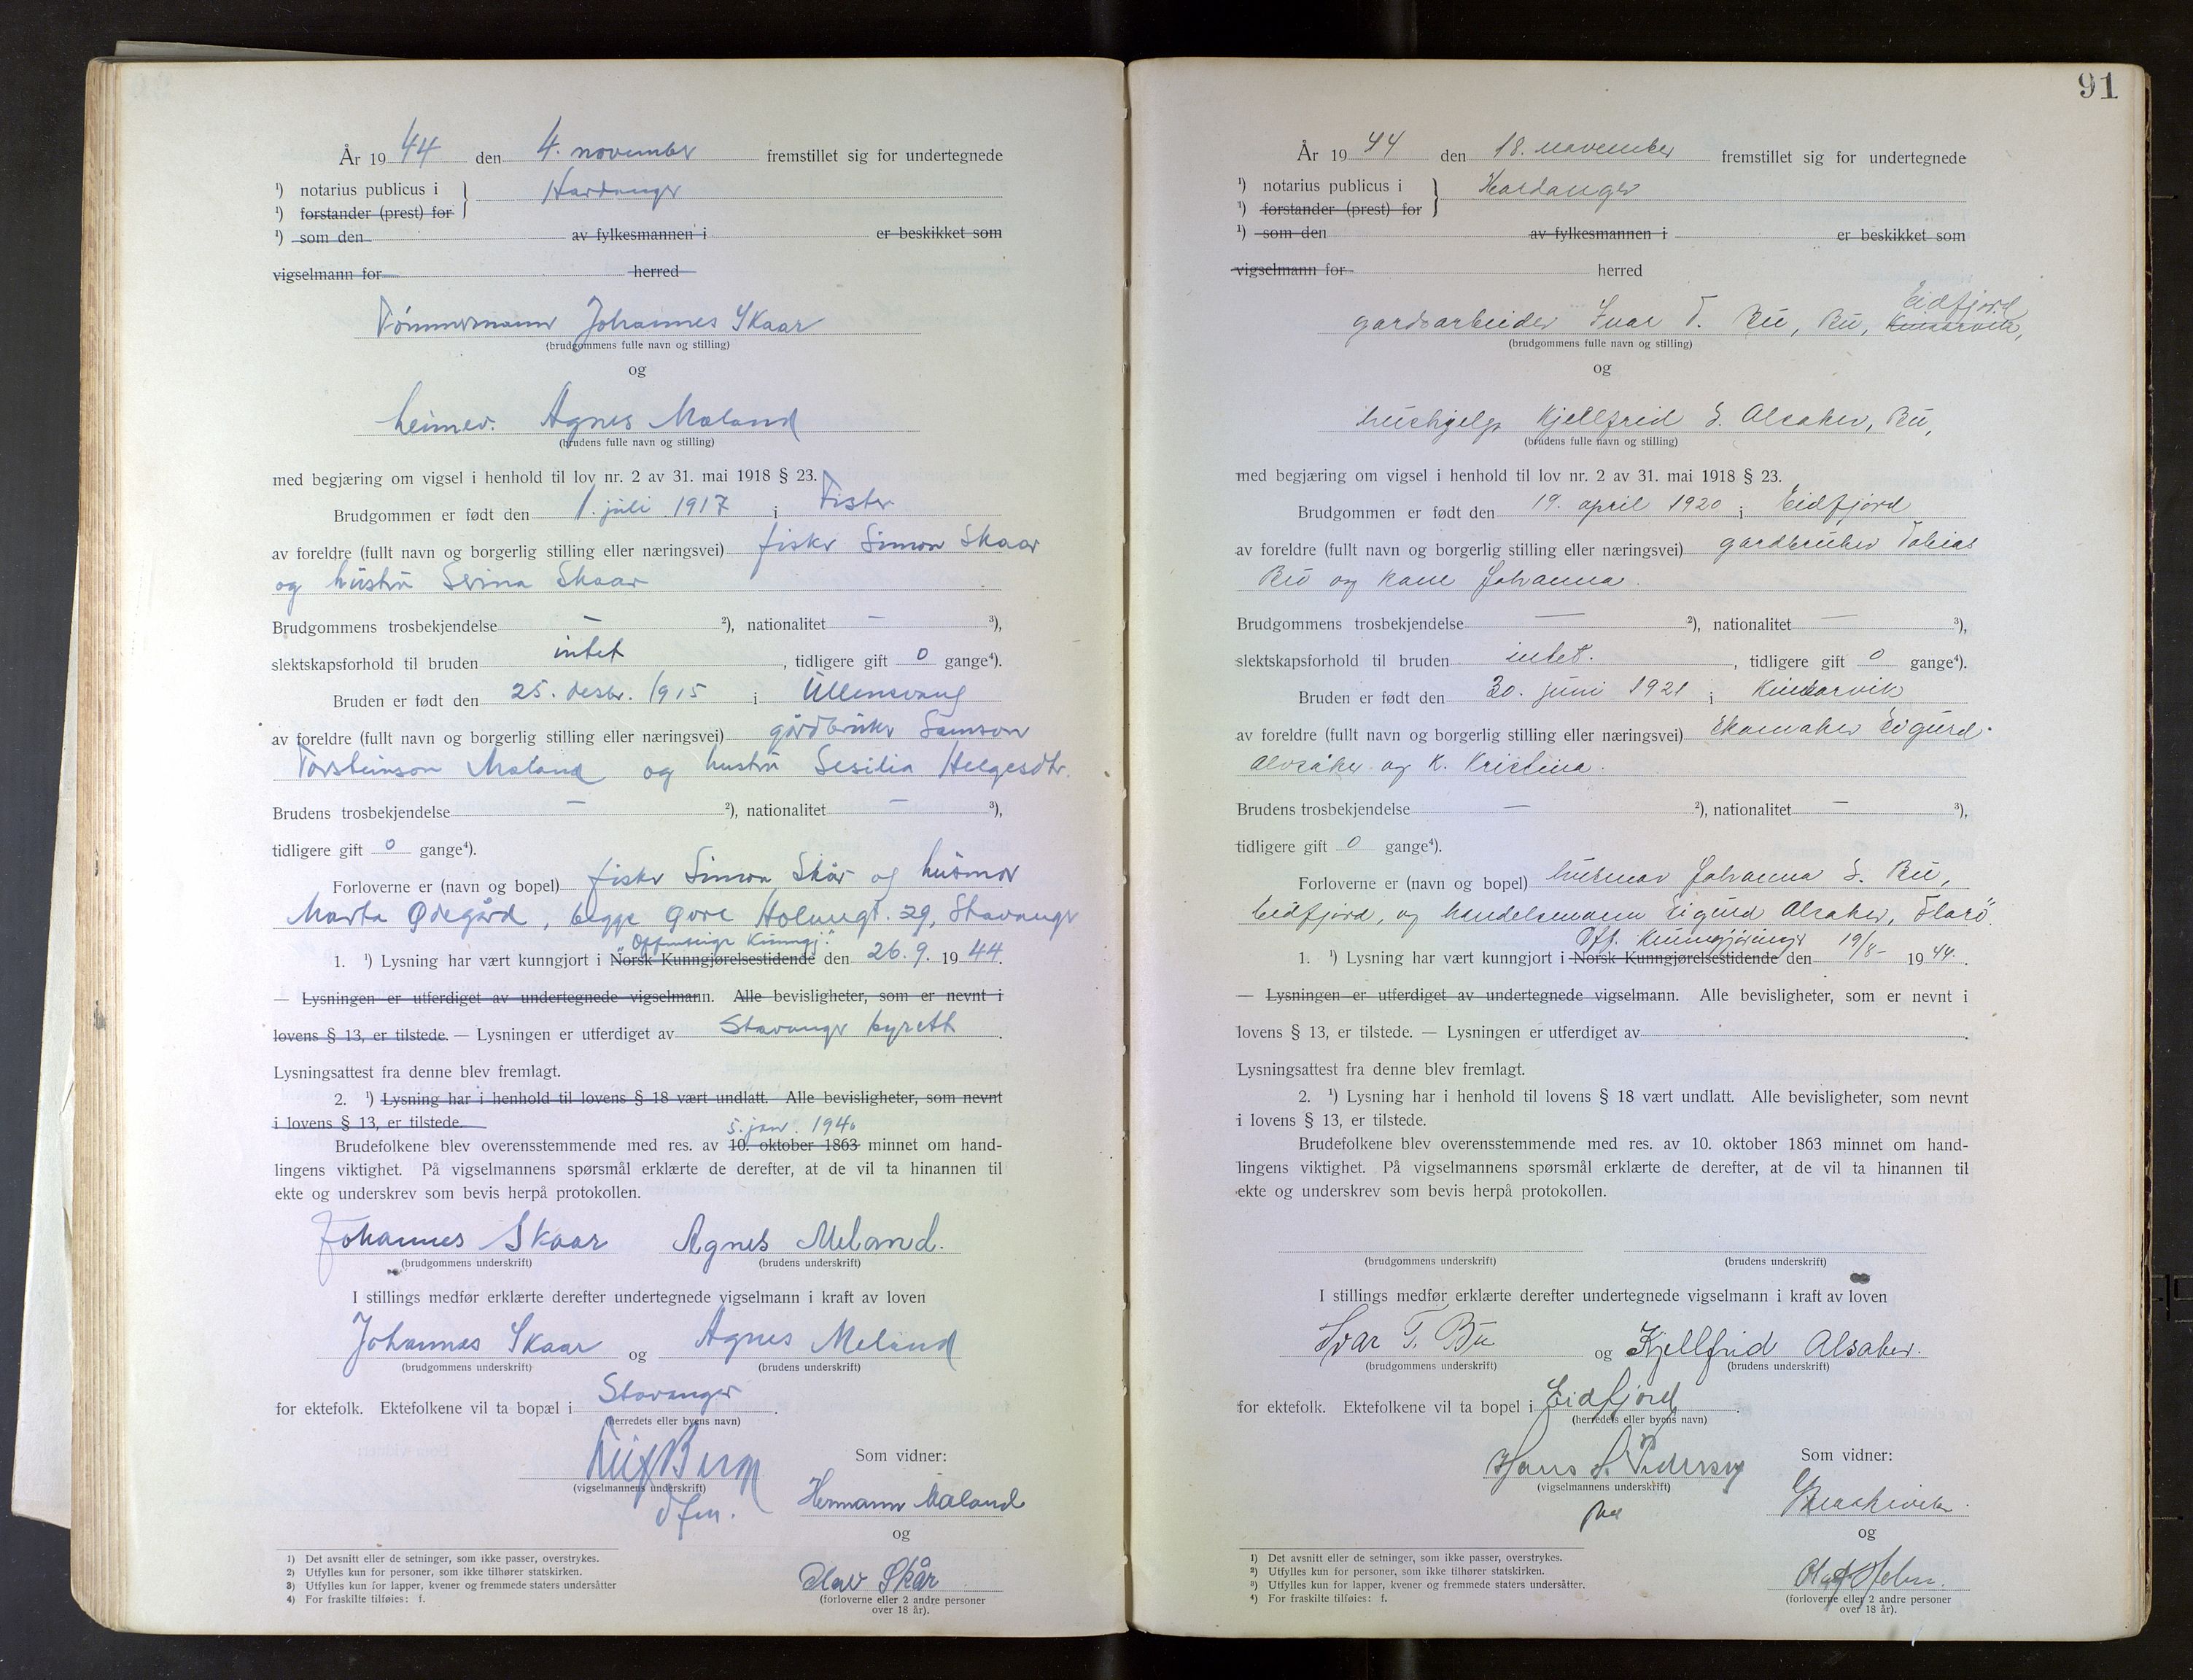 År 1944 den 4. november fremstillet sig for undertegnede
¹) notarius publicus i } Hardanger
¹) forstander (prest) for
¹) som den av fylkesmannen i er beskikket som
vigselmann for herred
Tømmermann Johannes Skaar
(brudgommens fulle navn og stilling)
og
heimev. Agnes Mæland
(brudens fulle navn og stilling)
med begjæring om vigsel i henhold til lov nr. 2 av 31. mai 1918 § 23.
Brudgommen er født den 1. juli 1917 i Fister
av foreldre (fullt navn og borgerlig stilling eller næringsvei) fisker Simon Skaar
og hustru Serina Skaar
Brudgommens trosbekjendelse — ²), nationalitet — ³),
slektskapsforhold til bruden intet, tidligere gift 0 gange⁴).
Bruden er født den 25. desbr. 1915 i Ullensvang
av foreldre (fullt navn og borgerlig stilling eller næringsvei) gårdbruker Samson
Torsteinson Mæland og hustru Sesilia Helgesdtr.
Brudens trosbekjendelse — ²), nationalitet — ³),
tidligere gift 0 gange⁴).
Forloverne er (navn og bopel) fisker Simon Skår og husmor
Marta Ødegård, begge Øvre Holmegt. 29, Stavanger
"Offentlige Kunngj."
1. ¹) Lysning har vært kunngjort i Norsk Kunngjørelsestidende den 26. 9. 1944.
— Lysningen er utferdiget av undertegnede vigselmann. Alle bevisligheter, som er nevnt i
lovens § 13, er tilstede. — Lysningen er utferdiget av Stavanger byrett.
Lysningsattest fra denne blev fremlagt.
2. ¹) Lysning har i henhold til lovens § 18 vært undlatt. Alle bevisligheter, som nevnt
i lovens § 13, er tilstede.
5. jan. 1940
Brudefolkene blev overensstemmende med res. av 10. oktober 1863 minnet om hand-
lingens viktighet. På vigselmannens spørsmål erklærte de derefter, at de vil ta hinannen til
ekte og underskrev som bevis herpå protokollen.
Johannes Skaar Agnes Meland.
(brudgommens underskrift) (brudens underskrift)
I stillings medfør erklærte derefter undertegnede vigselmann i kraft av loven
Johannes Skaar og Agnes Meland
(brudgommens underskrift) (brudens underskrift)
for ektefolk. Ektefolkene vil ta bopæl i Stavanger.
(herredets eller byens navn)
Som vidner:
(vigselmannens underskrift)
Hermann Mæland
dfm.
og
Olav Skår
(forloverne eller 2 andre personer
over 18 år).
1) Det avsnitt eller de setninger, som ikke passer, overstrykes.
2) Utfylles kun for personer, som ikke tilhører statskirken.
3) Utfylles kun for lapper, kvener og fremmede staters undersåtter
4) For fraskilte tilføies: f.
91
År 1944 den 18. november fremstillet sig for undertegnede
¹) notarius publicus i } Hardanger
¹) forstander (prest) for
¹) som den av fylkesmannen i er beskikket som
vigselmann for herred
Eidfjord
gardsarbeider Ivar T. Bu, Bu, Kinsarvik,
(brudgommens fulle navn og stilling)
og
hushjelp Kjellfrid S. Alsaker, Bu,
(brudens fulle navn og stilling)
med begjæring om vigsel i henhold til lov nr. 2 av 31. mai 1918 § 23.
Brudgommen er født den 19. april 1920 i Eidfjord
av foreldre (fullt navn og borgerlig stilling eller næringsvei) gardbruker Tobias
Bu og kone Johanna.
Brudgommens trosbekjendelse — ²), nationalitet — ³),
slektskapsforhold til bruden intet., tidligere gift 0 gange⁴).
Bruden er født den 30. juni 1921 i Kinsarvik
av foreldre (fullt navn og borgerlig stilling eller næringsvei) Skomaker Sigurd
Alsaker og K. Kristina.
Brudens trosbekjendelse — ²), nationalitet — ³),
tidligere gift 0 gange⁴).
Forloverne er (navn og bopel) husmor Johanna S. Bu,
Eidfjord, og handelsmann Sigurd Alsaker,
Off. Kunngjøringer
1. ¹) Lysning har vært kunngjort i Norsk Kunngjørelsestidende den 19/8- 1944.
— Lysningen er utferdiget av undertegnede vigselmann. Alle bevisligheter, som er nevnt i
lovens § 13, er tilstede. — Lysningen er utferdiget av .
Lysningsattest fra denne blev fremlagt.
2. ¹) Lysning har i henhold til lovens § 18 vært undlatt. Alle bevisligheter, som nevnt
i lovens § 13, er tilstede.
Brudefolkene blev overensstemmende med res. av 10. oktober 1863 minnet om hand-
lingens viktighet. På vigselmannens spørsmål erklærte de derefter, at de vil ta hinannen til
ekte og underskrev som bevis herpå protokollen.
(brudgommens underskrift) (brudens underskrift)
I stillings medfør erklærte derefter undertegnede vigselmann i kraft av loven
Ivar T. Bu og Kjellfrid Alsaker.
(brudgommens underskrift) (brudens underskrift)
for ektefolk. Ektefolkene vil ta bopel i Eidfjord.
(herredets eller byens navn)
Som vidner:
Hans S. Pedersen
(vigselmannens underskrift)
og
(forloverne eller 2 andre personer
over 18 år).
1) Det avsnitt eller de setninger, som ikke passer, overstrykes.
2) Utfylles kun for personer, som ikke tilhører statskirken.
3) Utfylles kun for lapper, kvener og fremmede staters undersåtter.
4) For fraskilte tilføies: f.